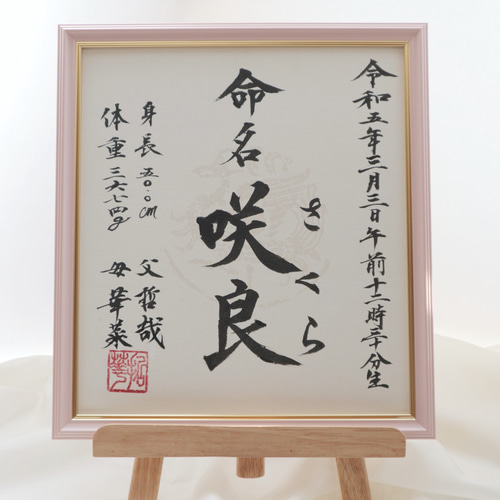 令和五年三月三日午前十二時三十分生
命名 咲良
さくら
身長 五〇.〇cm
体重 三六七四g
父 哲哉
母 華菜